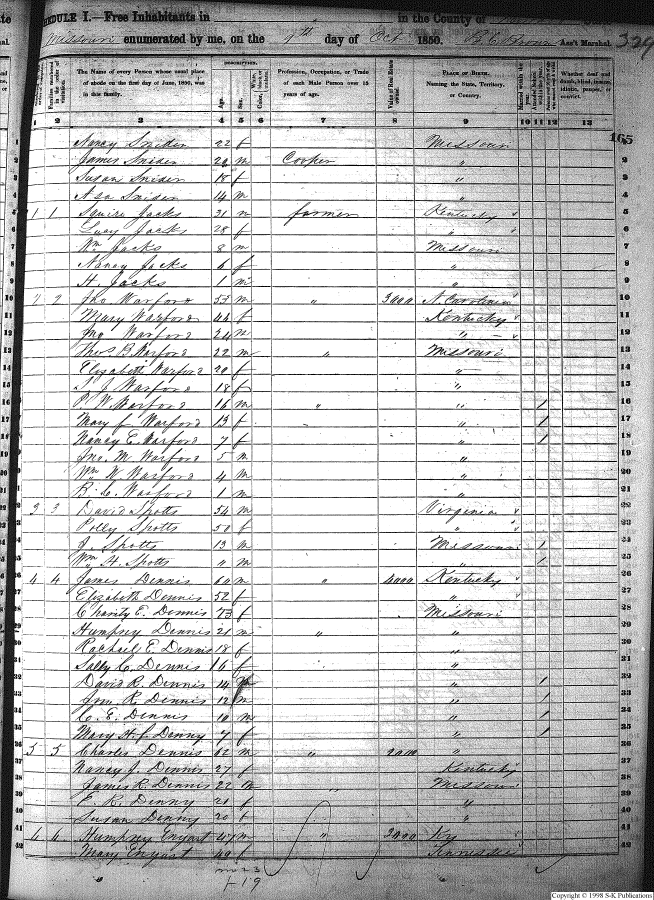 EDULE I.—Free Inhabitants in in the County of
Missouri enumerated by me, on the 9th day of Oct 1850. Ass't Marshal. 329
The Name of every Person whose usual place of abode on the first day of June, 1850, was in this family.
DESCRIPTION.
Age.
Sex.
Profession, Occupation, or Trade of each Male Person over 15 years of age.
Value of Real Estate owned.
PLACE OF BIRTH. Naming the State, Territory, or Country.
Whether deaf and dumb, blind, insane, idiotic, pauper, or convict.
1 2 3 4 5 6 7 8 9 10 11 12 13
165
Nancy Snider 22 f Missouri
James Snider 20 m Cooper "
Susan Snider 15 f "
Asa Snider 14 m "
1 1 Squire Jacks 31 m farmer Kentucky
Lucy Jacks 28 f "
Wm Jacks 8 m Missouri
Nancy Jacks 6 f "
H. Jacks 1 m "
2 2 Tho Warford 53 m " 3000 N. Carolina
Mary Warford 44 f Kentucky
Jno Warford 24 m "
Thos B. Warford 22 m " Missouri
Elizabeth Warford 20 f "
S J Warford 18 f "
P. W. Warford 16 m " " 1
Mary f Warford 13 f " 1
Nancy E. Warford 7 f " 1
Jno. M. Warford 5 m "
Wm W. Warford 4 m "
B. C. Warford 1 m "
3 3 David Spotts 54 m Virginia
Polly Spotts 50 f "
J Spotts 13 m Missouri 1
Wm H. Spotts 11 m " 1
4 4 James Dennis 60 m " 4000 Kentucky
Elizabeth Dennis 52 f "
Charity E. Dennis 73 f Missouri
Humphry Dennis 21 m " "
Rachael E. Dennis 18 f "
Sally C. Dennis 16 f "
David R. Dennis 14 m " 1
Jno. R. Dennis 12 m " 1
C. E. Dennis 10 m " 1
Mary H. f Denny 7 f " 1
5 5 Charles Dennis 62 m " 2000 "
Nancy J. Dennis 27 f Kentucky
James R. Dennis 22 m " Missouri
E. R. Denny 21 f "
Susan Denny 20 f "
6 6 Humphrey Enyart 47 m " 2000 Ky
Mary Enyart 40 f Tennessee
m 23
f 19
Copyright © 1998 S-K Publications